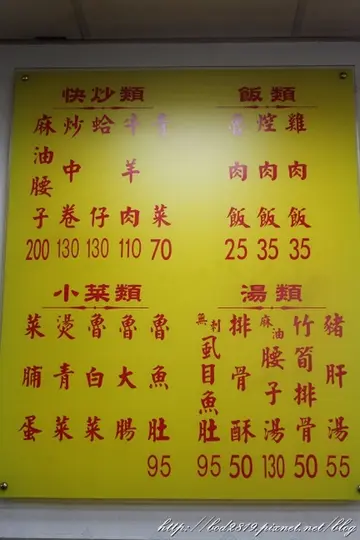 快炒類
青菜 70
牛羊肉 110
蛤仔 130
炒中卷 130
麻油腰子 200
飯類
雞肉飯 35
焢肉飯 35
肉飯 25
小菜類
魯魚肚 95
魯大腸
魯白菜
燙青菜
菜脯蛋
湯類
豬肝湯 55
竹筍排骨湯 50
麻油腰子湯 130
排骨酥 50
無刺虱目魚肚 95
http://bod2819.pixnet.net/blog